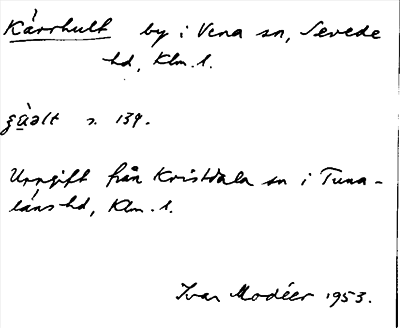 Kärrhult by i Vena sn, Sevede
hd, Klm. l.
s. 139.
Uppgift från Kristdala sn i Tuna-
läns hd, Klm. l.
Ivar Modéer 1953.